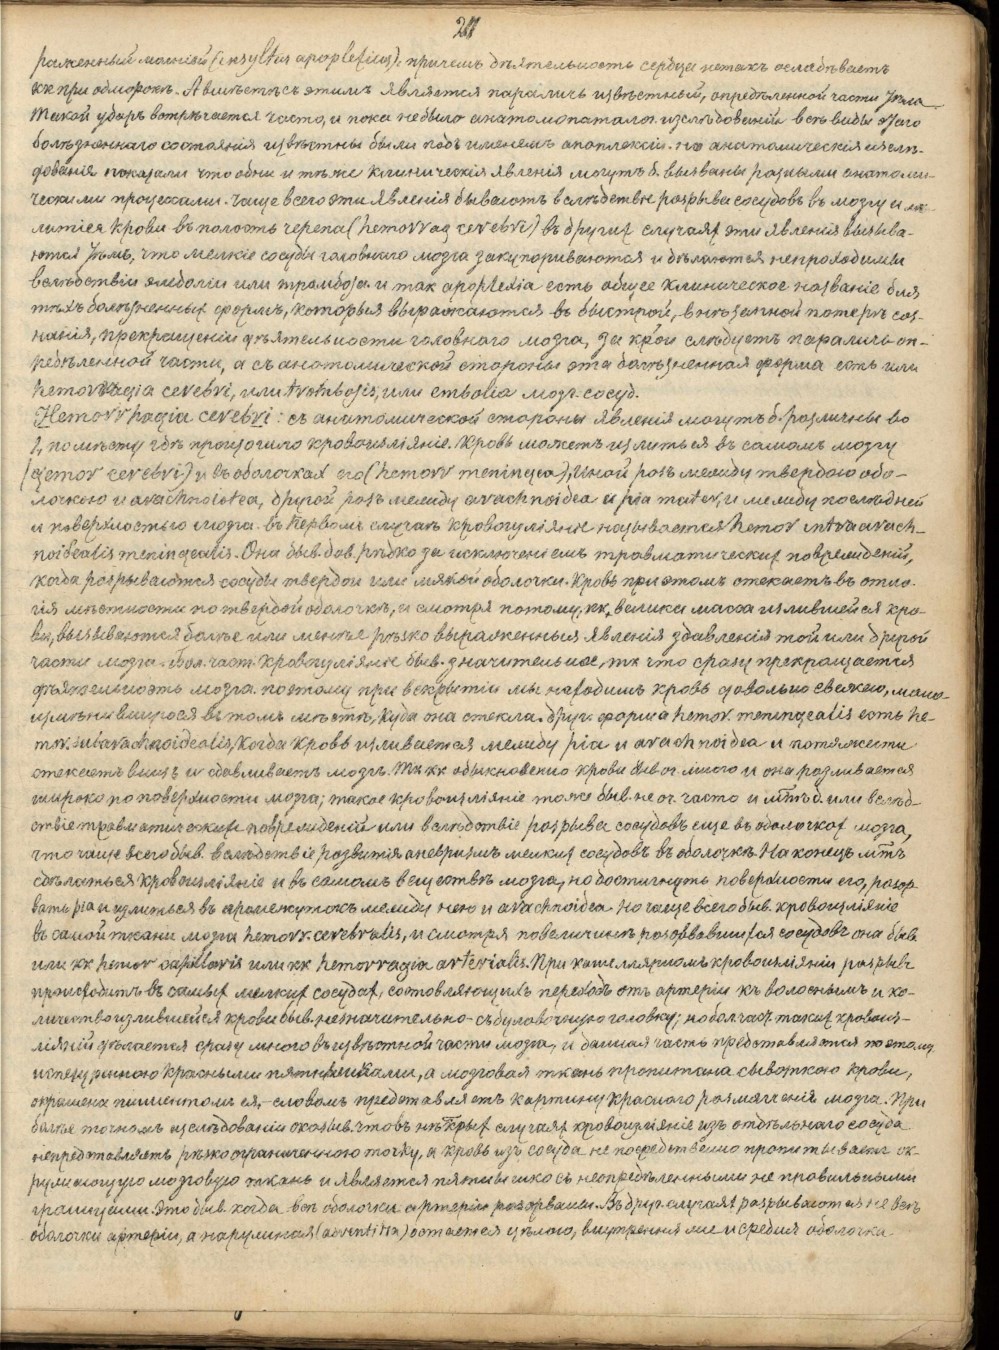 раженный молніей (insyltus apoplekticus), причемъ дѣятельность сердца не такъ ослабѣваетъ
кк при обморокѣ. А вмѣстѣ съ этимъ является параличъ извѣстный, опредѣленной части тѣла
Такой ударъ встрѣчается часто, и пока не было анатомопаталог. изслѣдованій всѣ виды этаго
болѣзненнаго состоянія извѣстны были подъ именемъ апоплексіи. но анатомическія изслѣ-
дованія показали что одни и тѣ же клиническія явленія могутъ б. вызваны разными анатоми-
ческими процесами. чаще всего эти явленія бываютъ вслѣдствіе разрыва сосудовъ въ мозгу и из-
литія крови въ полость черепа (hemorrag cerebri) въ другихъ случаяхъ эти явленія вызыва-
ются тѣмъ, что мелкіе сосуды головнаго мозга закупориваются и дѣлаются непроходимы
вслѣдствіи эмболіи или тромбоза. и так apoplexia есть общее клиническое названіе для
тѣхъ болѣзненныхъ формъ, которыя выражаются въ быстрой, внѣзапной потерѣ соз-
нанія, прекращеніи дѣятельности головнаго мозга, за крой слѣдуетъ параличъ оп-
редѣленной части, а съ анатомической стороны эта болѣзненная форма есть или
hemorrhagia cerebri, или trombosis, или embolia мозг. сосуд.
Hemorrhagia cerebri: съ анатомической стороны явленія могутъ б. различны во
1, по мѣсту гдѣ произошло кровоизліяніе. Кровь можетъ излиться въ самомъ мозгу
(hemor cerebri) и въ оболочкахъ его (hemorr meningea), иной разъ между твердою обо-
лочкою и arachnoidea, другой разъ между arachnoidea и pia mater, и между послѣдней
и поверхностью мозга. въ первомъ случаѣ кровоизліяніе называется hemor intraarach-
noidealis meningealis. Она быв. дов. рѣдко за исключеніемъ травматическихъ поврежденій,
когда разрываются сосуды твердой или мягкой оболочки. Кровь при этомъ стекаетъ въ отло-
гія мѣстности по твердой оболочкѣ, и смотря потому, кк велика масса излившейся кро-
ви, вызываются болѣе или менѣе рѣзко выраженныя явленія здавленія той или другой
части мозга. Бол. част. кровоизліяніе быв. значительное, тк что сразу прекращается
дѣятельность мозга. поэтому при вскрытіи мы находимъ кровь довольно свежею, мало-
измѣнившуюся въ томъ мѣстѣ, куда она стекла. друг. форма hemor. meningealis есть he-
mor. subarachnoidealis, когда кровь изливается между pia и arachnoidea и по тяжести
стекаетъ внизъ и сдавливаетъ мозгъ. Тк кк обыкновенно крови быв оч. много и она разливается
широко по поверхности мозга; такое кровоизліяніе тоже быв. не оч. часто и мтъ б. или вслѣд-
ствіе травматическихъ поврежденій или вслѣдствіе разрыва сосудовъ еще въ оболочкахъ мозга,
что чаще всего быв. вслѣдствіе развитія аневризмъ мелкихъ сосудовъ въ оболочкѣ. На конецъ мтъ
сдѣлаться кровоизліяніе и въ самомъ веществѣ мозга, но достигнуть поверхности его, разор-
вать pia и излиться въ промежутокъ между нею и arachnoidea. Но чаще всего быв. кровоизліяніе
въ самой ткани мозга hemorr. cerebralis, и смотря по величинѣ разорвавшихся сосудовъ она быв.
или кк hemor capilaris или кк hemorragia arterialis. При капеллярномъ кровоизліяніи разрывъ
происходитъ въ самыхъ мелкихъ сосудахъ, состовляющихъ переходъ отъ артеріи къ волоснымъ и ко-
личество излившейся крови быв. незначительно - съ булавочную головку; но бол. част. такихъ кровоиз-
ліяній дѣлается сразу много въ извѣстной части мозга, и данная часть представляется поэтому
испещренною красными пятнышками, а мозговая ткань пропитана сывороткою крови,
окрашена пигментомъ ея, - словомъ представляетъ картину краснаго размягченія мозга. При
болѣе точномъ изслѣдованіи оказыв. что въ нѣкрыхъ случаяхъ кровоизліяніе изъ отдѣльнаго сосуда
непредставляетъ рѣзко ограниченною точку, а кровь изъ сосуда непосредственно пропитываетъ ок-
ружающую мозговую ткань и является пятнышко съ неопредѣленными не правильными
границами. Это быв. когда всѣ оболочки артеріи разорваны. Въ друг. случаяхъ разрываются не всѣ
оболочки артеріи, а наружная (adventitia) остается цѣлою, внутренняя же и средняя оболочка